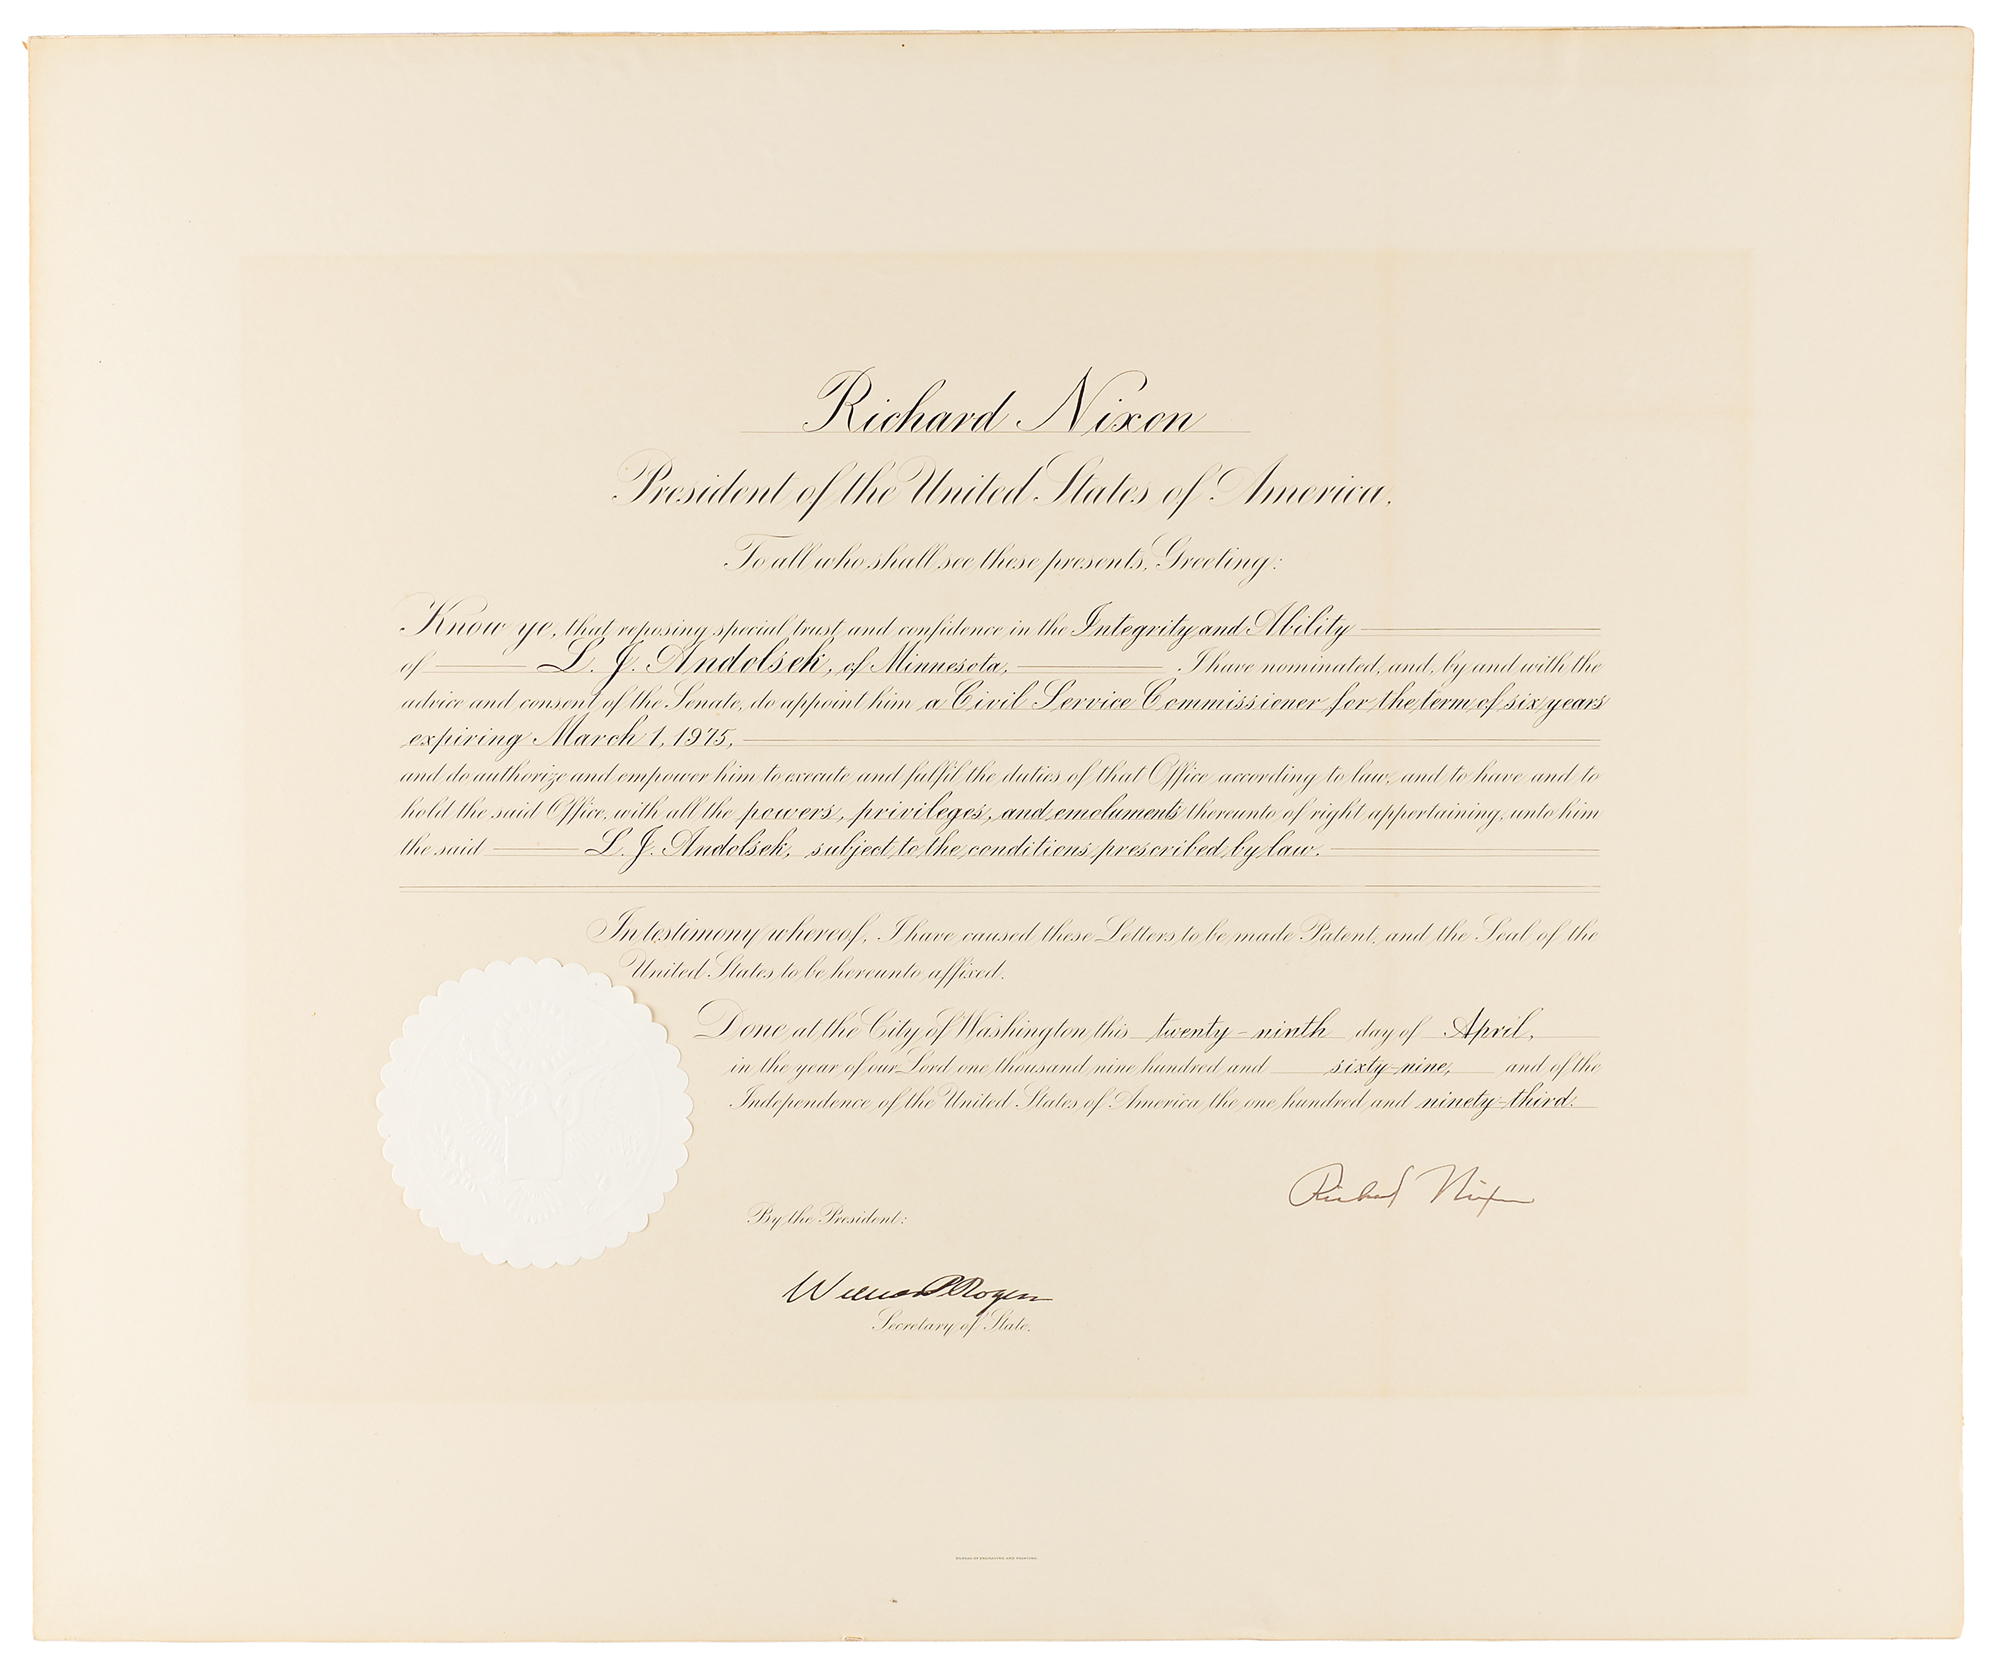 Richard Nixon
President of the United States of America,
To all who shall see these presents, Greeting:
Know ye, that reposing special trust and confidence in the Integrity and Ability
of L. J. Andolsek, of Minnesota, I have nominated, and, by and with the
advice and consent of the Senate, do appoint him a Civil Service Commissioner for the term of six years
expiring March 1, 1975,
and do authorize and empower him to execute and fulfil the duties of that Office according to law, and to have and to
hold the said Office, with all the powers, privileges, and emoluments thereunto of right appertaining, unto him
the said L. J. Andolsek, subject to the conditions prescribed by law.
In testimony whereof, I have caused these Letters to be made Patent, and the Seal of the
United States to be hereunto affixed.
Done at the City of Washington this twenty-ninth day of April,
in the year of our Lord one thousand nine hundred and sixty-nine, and of the
Independence of the United States of America the one hundred and ninety-third.
Richard Nixon
By the President:
William P. Rogers
Secretary of State.
BUREAU OF ENGRAVING AND PRINTING